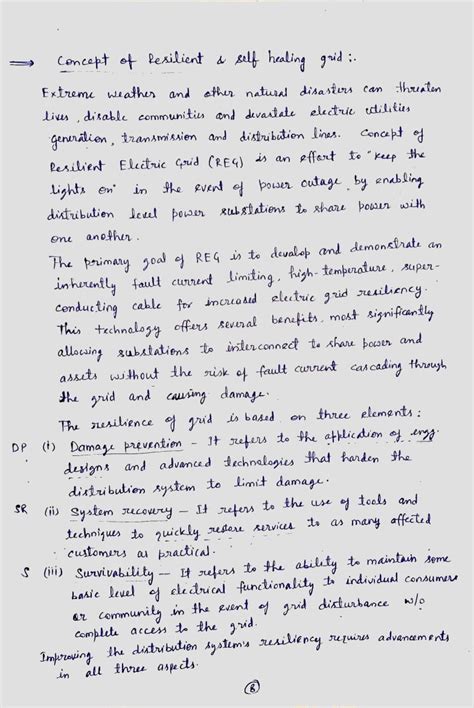 ⇒ Concept of Resilient & self healing grid :.
Extreme weather and other natural disasters can threaten
lives, disable communities and devastate electric utilities
generation, transmission and distribution lines. Concept of
Resilient Electric Grid (REG) is an effort to "keep the
lights on" in the event of power outage by enabling
distribution level power substations to share power with
one another.
The primary goal of REG is to develop and demonstrate an
inherently fault current limiting, high-temperature, super-
conducting cable for increased electric grid resiliency.
This technology offers several benefits, most significantly
allowing substations to interconnect to share power and
assets without the risk of fault current cascading through
the grid and causing damage.
The resilience of grid is based on three elements:
DP (i) Damage prevention - It refers to the application of engg.
designs and advanced technologies that harden the
distribution system to limit damage.
SR (ii) System recovery - It refers to the use of tools and
techniques to quickly restore services to as many affected
customers as practical.
S (iii) Survivability - It refers to the ability to maintain some
basic level of electrical functionality to individual consumers
or community in the event of grid disturbance w/o
complete access to the grid.
Improving the distribution system's resiliency requires advancements
in all three aspects.
8